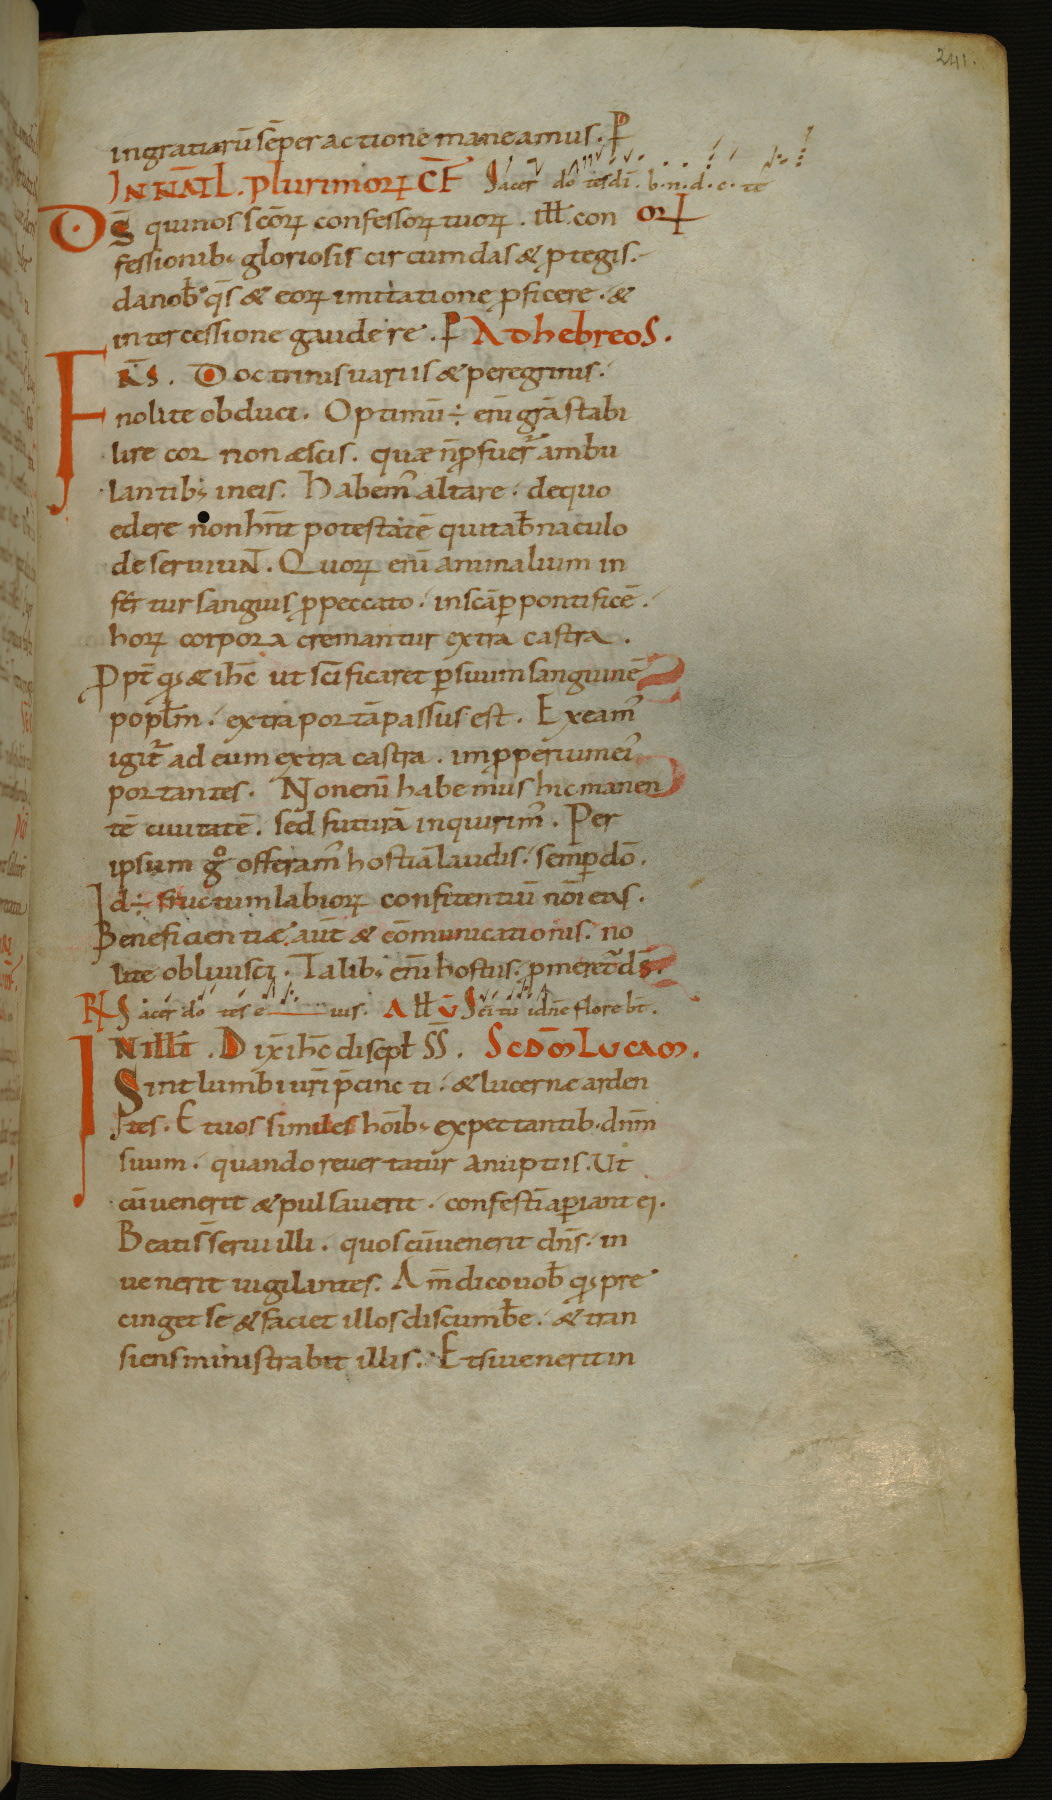 241.
in gratiarū sēper actione maneamus. P̄
IN NAT̄L. plurimorꝝ C̄F Sacer dotes dī. b. n. d. c. te
D̄S qui nos sc̄orꝝ confessorꝝ tuorꝝ. ill̄. con orꝝ
fessionib; gloriosis circumdas & ꝓtegis.
da nob̄ q̄s & eorꝝ imitatione ꝓficere. &
intercessione gaudere. P Ad hebreos.
FR̄S. Doctrinis variis & peregrinis.
nolite abduci. Optimū ÷ enī gr̄a stabi
lire cor non æscis. quæ n̄ ꝓfuer̄ ambu
lantib; in eis. Habem' altare. de quo
edere non hn̄t potestatē qui tab̄naculo
deserviunt. Quorꝝ enī animalium in
fer̄tur sanguis ꝓ peccato. in sc̄a ꝑ pontificē.
horꝝ corpora cremantur extra castra.
Propt̄ qđ & ih̄c ut sc̄ificaret ꝑ suum sanguinē
popl̄m. extra portā passus est. Exeam'
igit̄ ad eum extra castra. imꝓperium ei'
portantes. Non enī habemus hic manen
tē civitatē. sed futurā inquirim'. Per
ipsum g° offeram' hostiā laudis. semꝑ dō.
Id ÷ fructum labiorꝝ confitentiū nōi eius.
Beneficientiæ aūt & cōmunicationis. no
lite oblivisci. Talib; enī hostiis. ꝓmeret̄ ds̄.
R̄ Sacerdotes e——uis. All̄ V̄ Sc̄i tui dn̄e florebt̄.
IN ILL̄T. Dix ih̄c discipl̄ SS̄. Scdm̄ Lucam.
Sint lumbi ur̄i p̄cincti. & lucerne arden
tes. Et vos similes hōib; expectantib; dn̄m
suum. quando revertatur a nuptiis. Ut
cū venerit & pulsaverit. confestī aꝑiant ei.
Beatī servi illi. quos cū venerit dn̄s. in
venerit vigilantes. Am̄ dico vob̄ qđ pre
cinget se & faciet illos discumb̄e. & tran
siens ministrabit illis. Et si venerit in